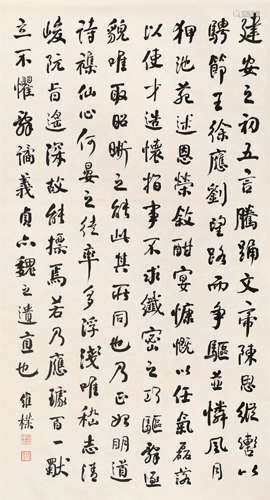 建安之初五言騰踊文帝陳思縱轡以
騁節王徐應劉望路而爭驅並憐風月
狎池苑述恩榮敘酣宴慷慨以任氣磊落
以使才造懷指事不求纖密之巧驅辭逐
貌唯取昭晰之能此其所同也乃正始明道
詩襍仙心何晏之徒率多浮淺唯嵇志清
峻阮旨遙深故能標焉若乃應璩百一獨
立不懼辭譎義貞亦魏之遺直也 維樸